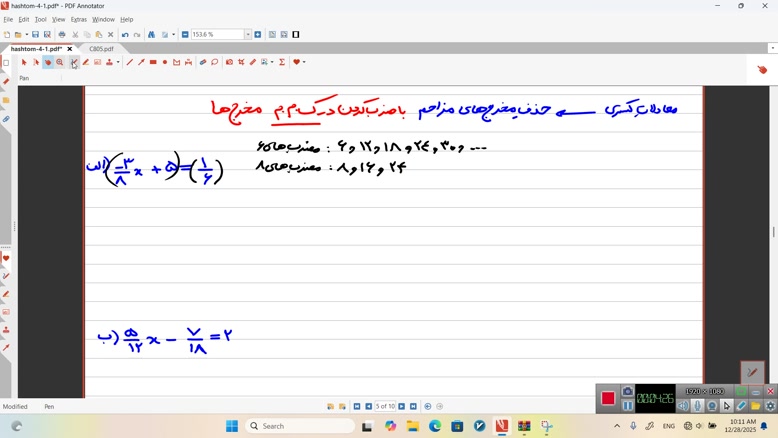 hashtom-4-1.pdf* - PDF Annotator
File Edit Tool View Extras Window Help
153.6 %
hashtom-4-1.pdf* C805.pdf
Pan
معادلات کسری ← حذف مخرج‌های مزاحم با ضرب کردن در ک.م.م مخرج‌ها
مضرب‌های ۶ : ۶ , ۱۲ , ۱۸ , ۲۴ , ۳۰ , ...
مضرب‌های ۸ : ۸ , ۱۶ , ۲۴
الف) (-۳/۸ x + ۵) = (۱/۶)
ب) ۵/۱۲ x - ۷/۱۸ = ۲
1920 × 1080
Modified Pen 5 of 10
Search
ENG
10:11 AM
12/28/2025